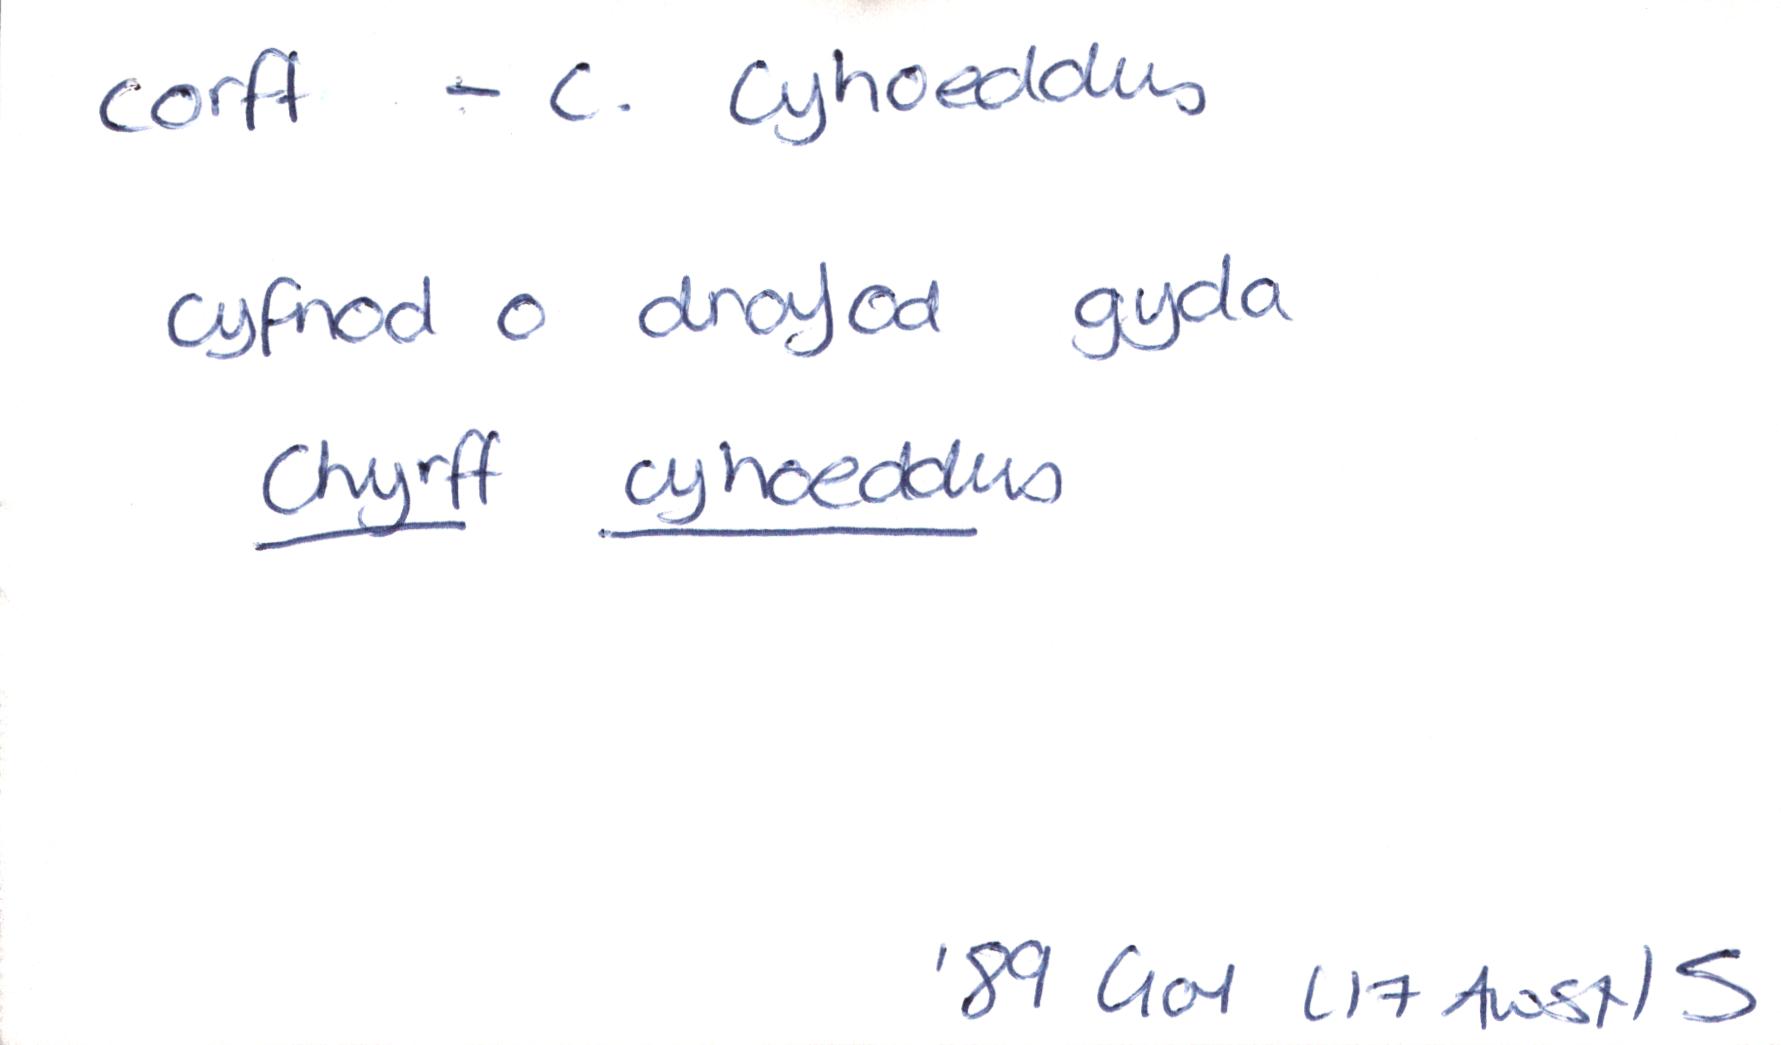 corff - C. Cyhoeddus
cyfnod o drafod gyda
Chyrff cyhoeddus
'89 Gol (17 Awst) 5